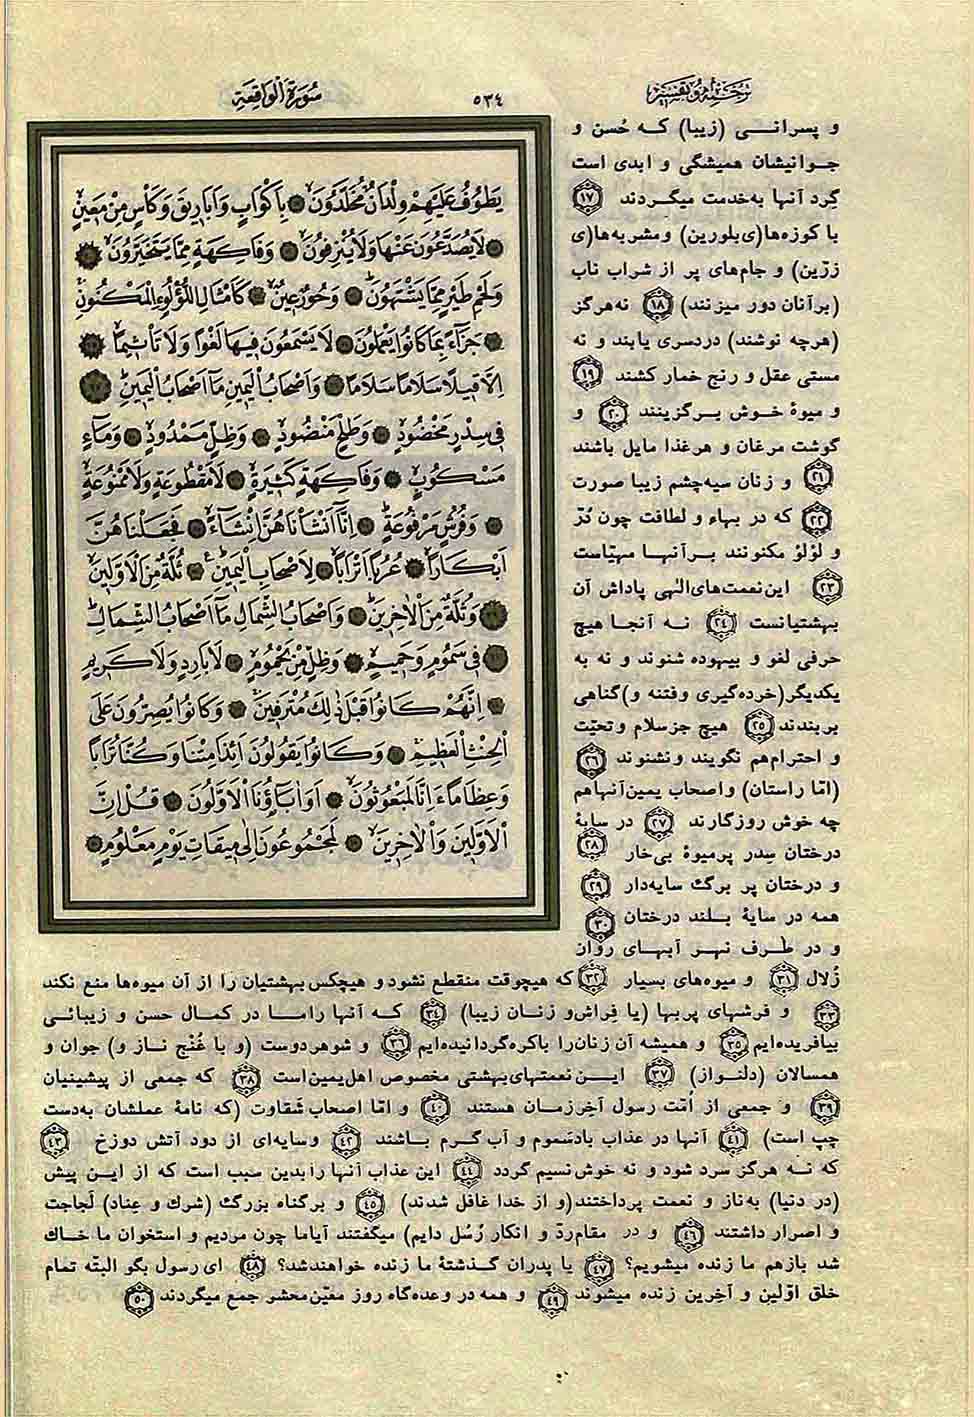 ترجمه و تفسیر
٥٣٤
سُورَةُ الْوَاقِعَةِ
يَطُوفُ عَلَيْهِمْ وِلْدَانٌ مُخَلَّدُونَ بِأَكْوَابٍ وَاَبَارِيقَ وَكَأْسٍ مِنْ مَعِينٍ
لَا يُصَدَّعُونَ عَنْهَا وَلَا يُنْزِفُونَ وَفَاكِهَةٍ مِمَّا يَتَخَيَّرُونَ
وَلَحْمِ طَيْرٍ مِمَّا يَشْتَهُونَ وَحُورٌ عِينٌ كَأَمْثَالِ اللُّؤْلُؤِ الْمَكْنُونِ
جَزَاءً بِمَا كَانُوا يَعْمَلُونَ لَا يَسْمَعُونَ فِيهَا لَغْوًا وَلَا تَأْثِيمًا
اِلَّا قِيلًا سَلَامًا سَلَامًا وَاَصْحَابُ الْيَمِينِ مَا اَصْحَابُ الْيَمِينِ
فِي سِدْرٍ مَخْضُودٍ وَطَلْحٍ مَنْضُودٍ وَظِلٍّ مَمْدُودٍ وَمَاءٍ
مَسْكُوبٍ وَفَاكِهَةٍ كَثِيرَةٍ لَا مَقْطُوعَةٍ وَلَا مَمْنُوعَةٍ
وَفُرُشٍ مَرْفُوعَةٍ اِنَّا اَنْشَأْنَاهُنَّ اِنْشَاءً فَجَعَلْنَاهُنَّ
اَبْكَارًا عُرُبًا اَتْرَابًا لِاَصْحَابِ الْيَمِينِ ثُلَّةٌ مِنَ الْاَوَّلِينَ
وَثُلَّةٌ مِنَ الْاٰخِرِينَ وَاَصْحَابُ الشِّمَالِ مَا اَصْحَابُ الشِّمَالِ
فِي سَمُومٍ وَحَمِيمٍ وَظِلٍّ مِنْ يَحْمُومٍ لَا بَارِدٍ وَلَا كَرِيمٍ
اِنَّهُمْ كَانُوا قَبْلَ ذٰلِكَ مُتْرَفِينَ وَكَانُوا يُصِرُّونَ عَلَى
الْحِنْثِ الْعَظِيمِ وَكَانُوا يَقُولُونَ اَئِذَا مِتْنَا وَكُنَّا تُرَابًا
وَعِظَامًا ءَاِنَّا لَمَبْعُوثُونَ اَوَ اٰبَاؤُنَا الْاَوَّلُونَ قُلْ اِنَّ
الْاَوَّلِينَ وَالْاٰخِرِينَ لَمَجْمُوعُونَ اِلٰى مِيقَاتِ يَوْمٍ مَعْلُومٍ
و پسرانی (زیبا) که حُسن و
جوانیشان همیشگی و ابدی است
گِرد آنها به‌خدمت میگردند ۱۷
با کوزه‌ها(ی‌بلورین) و مشربه‌ها(ی
زرّین) و جام‌های پر از شراب ناب
(برآنان دور میزنند) ۱۸ نه‌هرگز
(هرچه نوشند) دردسری یابند و نه
مستی عقل و رنج خمار کشند ۱۹
و میوۀ خوش برگزینند ۲۰ و
گوشت مرغان و هرغذا مایل باشند
۲۱ و زنان سیه‌چشم زیبا صورت
که در بهاء و لطافت چون دُرّ ۲۲
و لؤلؤ مکنونند برآنها مهیّاست
۲۳ این‌نعمت‌های‌الهی پاداش آن
بهشتیانست ۲۴ نه آنجا هیچ
حرفی لغو و بیهوده شنوند و نه به
یکدیگر(خرده‌گیری وفتنه و)گناهی
بربندند ۲۵ هیچ جزسلام وتحیّت
و احترام‌هم نگویند ونشنوند ۲۶
(امّا راستان) واصحاب یمین‌آنهاهم
چه خوش روزگارند ۲۷ در سایۀ
درختان سِدر پرمیوۀ بی‌خار ۲۸
و درختان پر برگ سایه‌دار ۲۹
همه در سایۀ بلند درختان ۳۰
و در طرف نهر آبهای روان
زُلال ۳۱ و میوه‌های بسیار ۳۲ که هیچوقت منقطع نشود و هیچکس بهشتیان را از آن میوه‌ها منع نکند
۳۳ و فرشهای پربها (یا فِراش‌و زنان زیبا) ۳۴ که آنها راما در کمال حسن و زیبائی
بیافریده‌ایم ۳۵ و همیشه آن زنان‌را باکره‌گردانیده‌ایم ۳۶ و شوهردوست (و با غُنْج ناز و) جوان و
همسالان (دلنواز) ۳۷ این‌نعمتهای‌بهشتی مخصوص اهل‌یمین‌است ۳۸ که جمعی از پیشینیان
۳۹ و جمعی از اُمّت رسول آخِرزمان هستند ۴۰ و امّا اصحاب شَقاوت (که نامۀ عملشان به‌دست
چپ است) ۴۱ آنها در عذاب بادسَموم و آب گرم باشند ۴۲ وسایه‌ای از دود آتش دوزخ ۴۳
که نه هرگز سرد شود و نه خوش‌نسیم گردد ۴۴ این عذاب آنها رابدین سبب است که از این پیش
(در دنیا) به‌ناز و نعمت پرداختند(و از خدا غافل شدند) ۴۵ و برگناه بزرگ (شرك و عِناد) لَجاجت
و اصرار داشتند ۴۶ و در مقام‌ردّ و انکار رُسُل دایم) میگفتند آیاما چون مردیم و استخوان ما خاك
شد بازهم ما زنده میشویم؟ ۴۷ یا پدران گذشتۀ ما زنده خواهندشد؟ ۴۸ ای رسول بگو البتّه تمام
خلق اوّلین و آخِرین زنده میشوند ۴۹ و همه در وعده‌گاه روز معیّن‌محشر جمع میگردند ۵۰